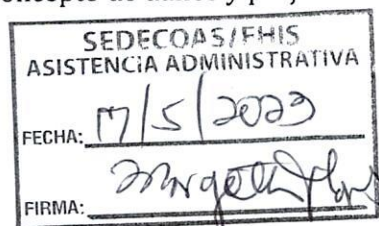 SEDECOAS/FHIS
ASISTENCIA ADMINISTRATIVA
FECHA: 17/5/2023
FIRMA: